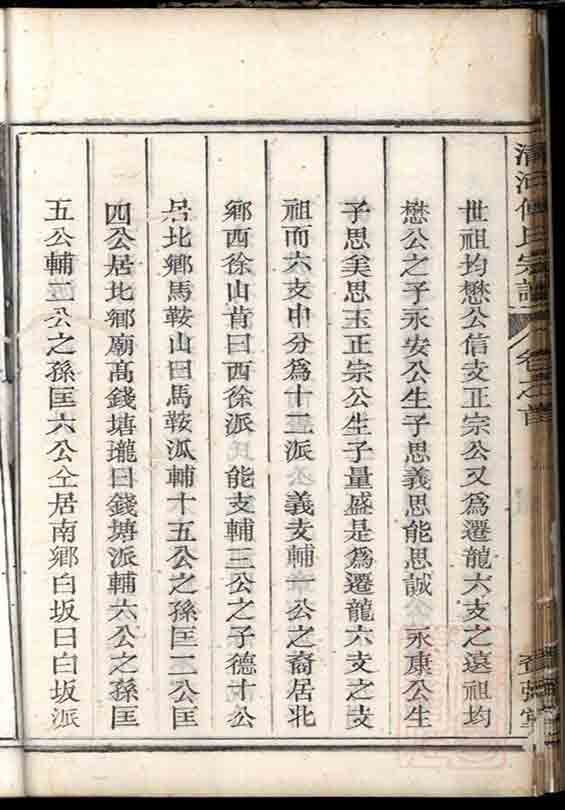 世祖均懋公信支正宗公又爲遷龍六支之遠祖均
懋公之子永安公生子思義思能思誠 永康公生
子思矣思玉正宗公生子量盛是爲遷龍六支之支
祖而六支中分爲十三派 義支輔一公之裔居北
鄉西徐山肯曰西徐派 能支輔三公之子德十公
居北鄉馬鞍山曰馬鞍派輔十五公之孫匡二公匡
四公居北鄉廟高錢塘瓏曰錢塘派輔六公之孫匡
五公輔二公之孫匡六公仝居南鄉白坂曰白坂派
氏宗譜 卷之首
堂